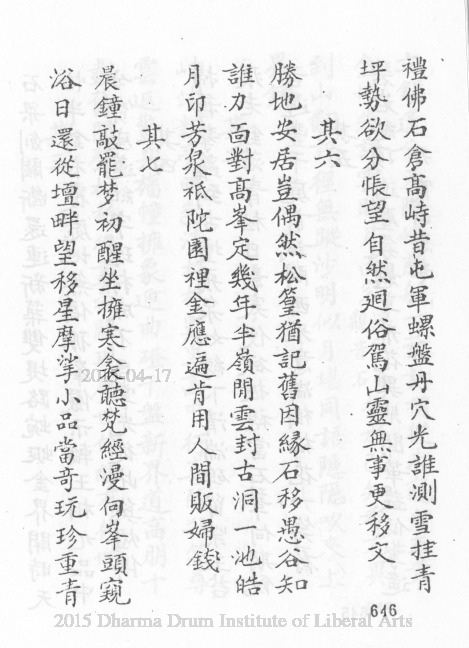 禮佛石倉高峙昔屯軍螺盤丹穴光誰測雪挂青
坪勢欲分悵望自然迴俗駕山靈無事更移文
其六
勝地安居豈偶然松篁猶記舊因緣石移愚谷知
誰力面對高峯定幾年半嶺閒雲封古洞一池皓
月印芳泉祇陀園裡金應遍肯用人間販婦錢
其七
晨鐘敲罷梦初醒坐擁寒衾聽梵經漫向峯頭窺
浴日還從壇畔望移星摩挲小品當奇玩珍重青
646
2015-04-17
2015 Dharma Drum Institute of Liberal Arts